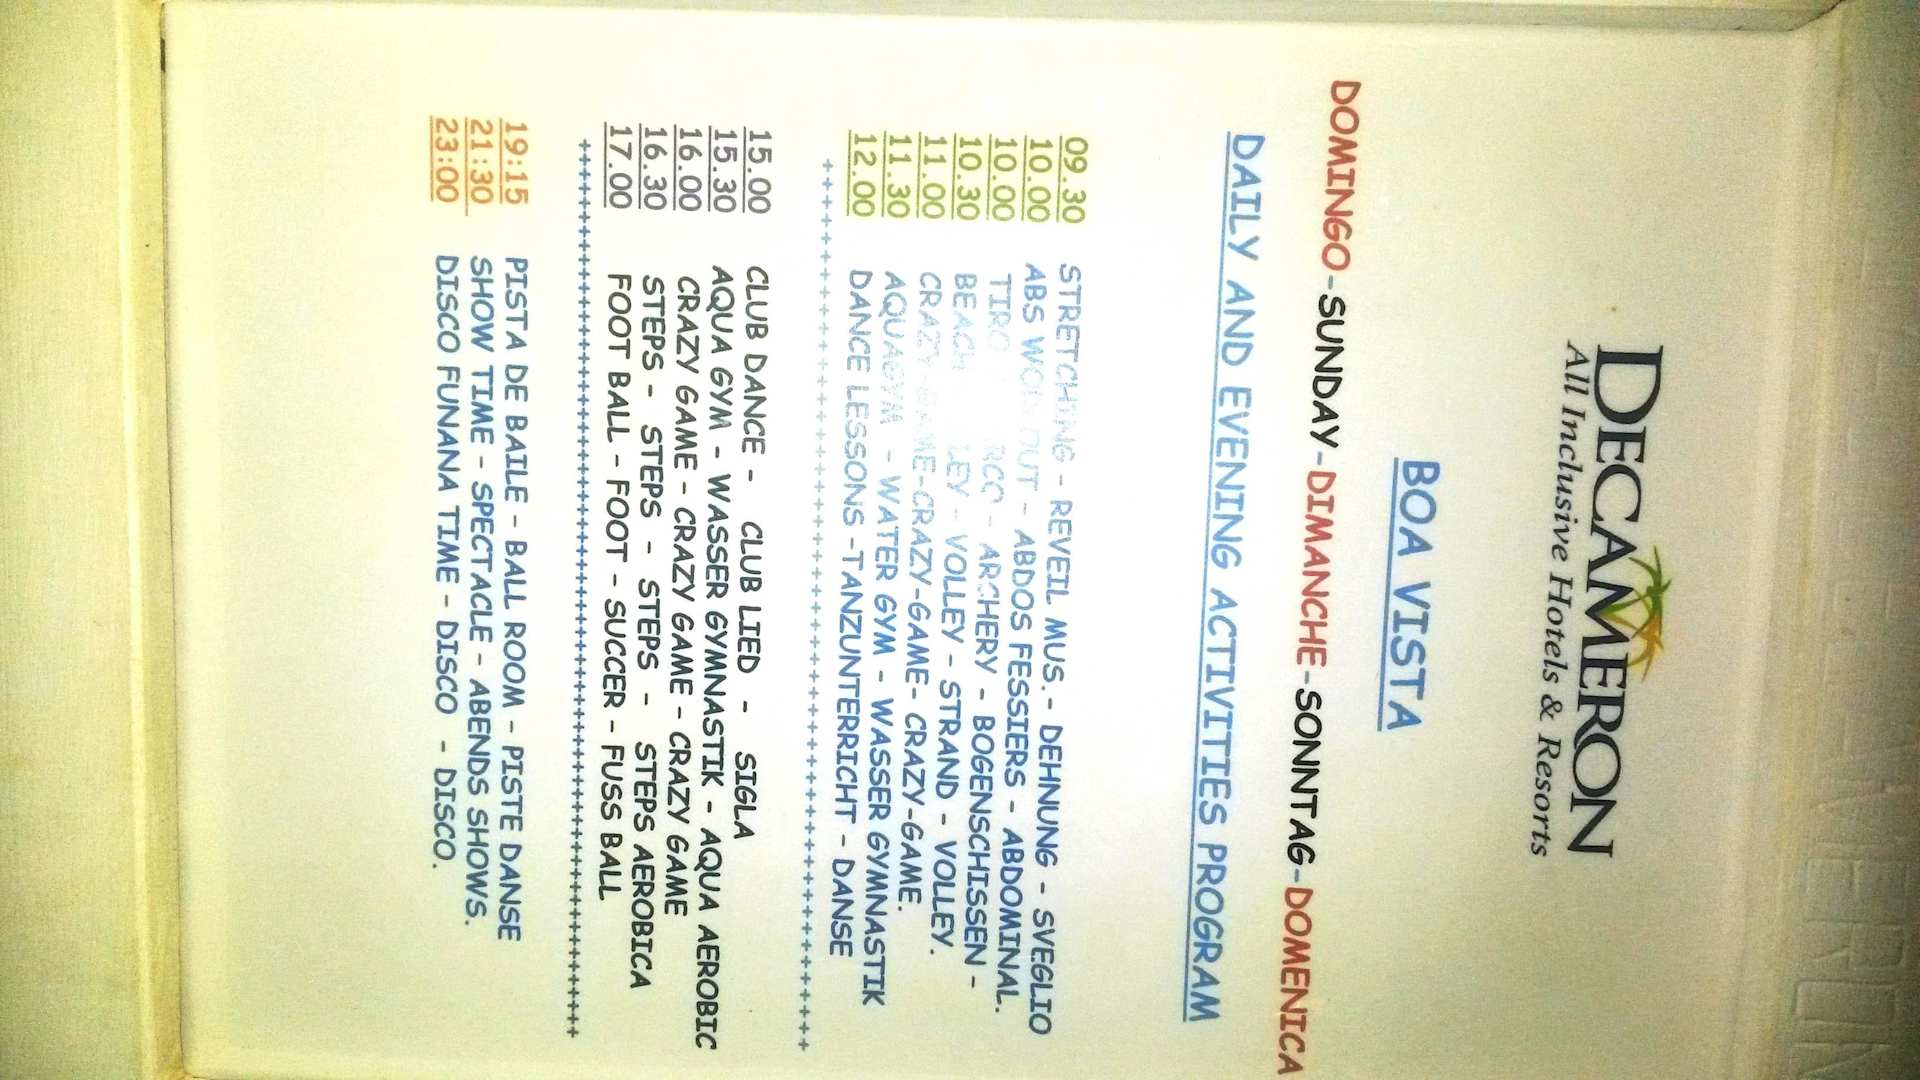 DECAMERON
All Inclusive Hotels & Resorts
BOA VISTA
DOMINGO-SUNDAY-DIMANCHE-SONNTAG-DOMENICA
DAILY AND EVENING ACTIVITIES PROGRAM
09.30 STRETCHING - REVEIL MUS. - DEHNUNG - SVEGLIO
10.00 ABS WORKOUT - ABDOS FESSIERS - ABDOMINAL.
10.00 TIRO - ARCHERY - BOGENSCHISSEN -
10.30 BEACH VOLLEY - STRAND - VOLLEY.
11.00 CRAZY-GAME-CRAZY-GAME- CRAZY-GAME.
11.30 AQUAGYM - WATER GYM - WASSER GYMNASTIK
12.00 DANCE LESSONS -TANZUNTERRICHT - DANSE
15.00 CLUB DANCE - CLUB LIED - SIGLA
15.30 AQUA GYM - WASSER GYMNASTIK - AQUA AEROBIC
16.00 CRAZY GAME - CRAZY GAME - CRAZY GAME
16.30 STEPS - STEPS - STEPS - STEPS AEROBICA
17.00 FOOT BALL - FOOT - SUCCER - FUSS BALL
19:15 PISTA DE BAILE - BALL ROOM - PISTE DANSE
21:30 SHOW TIME - SPECTACLE - ABENDS SHOWS.
23:00 DISCO FUNANA TIME - DISCO - DISCO.